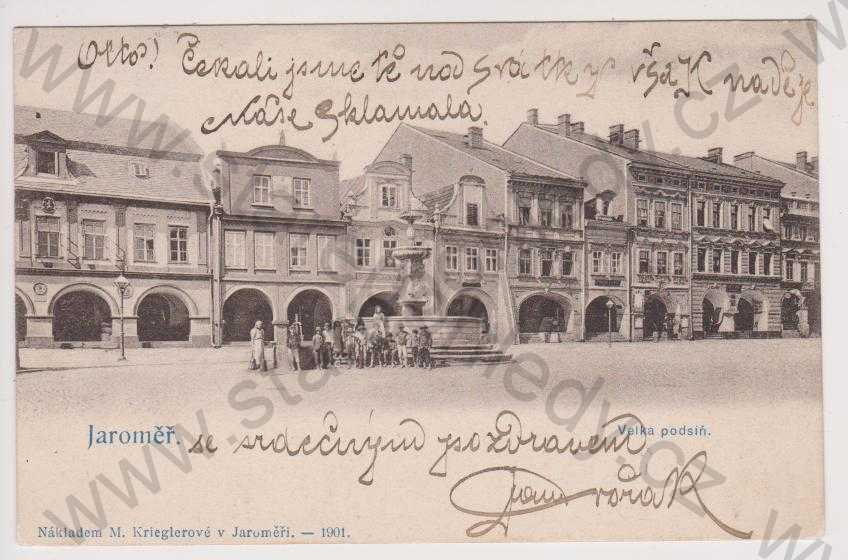 Otto! Čekali jsme tě nad svátky však naděje
Naše sklamala.
Jaroměř.
se srdečným pozdravem
Velka podsiň.
Dvořák
Nákladem M. Krieglerové v Jaroměři. — 1901.